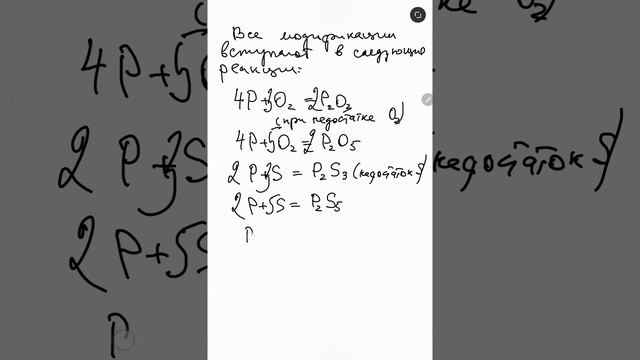 Все модификации
вступают в следующие
реакции:
4P+3O₂=2P₂O₃
(при недостатке O₂)
4P+5O₂=2P₂O₅
2P+3S = P₂S₃ (недостаток S)
2P+5S = P₂S₅
P